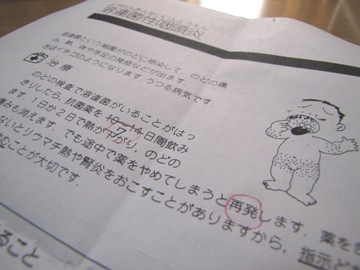 溶連菌性咽頭炎
溶連菌という細菌がのどに感染して、のどの痛
み、熱、体や手足の発疹などが出ます。
はイチゴのようになります。うつる病気です。
治療
のどの検査で溶連菌がいることがはっ
きりしたら、抗菌薬を10〜14日間飲み
7
ます。1日か2日で熱が下がり、のどの
痛みも消えます。でも途中で薬をやめてしまうと再発します。薬を
ないとリウマチ熱や腎炎をおこすことがありますから、指示ど
むことが大切です。
ること